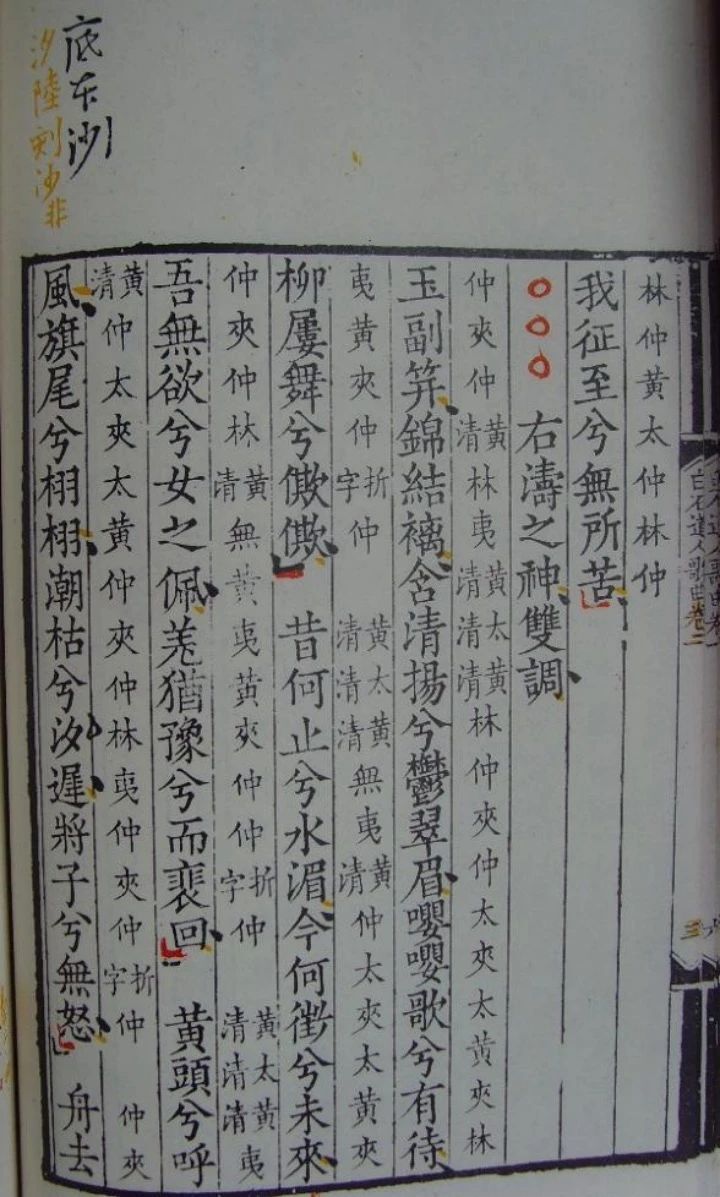 白石道人歌曲卷二
林仲黃太仲林仲
我征至兮無所苦
○○○ 右濤之神雙調
仲夾仲黃清林夷黃清太清黃清林仲夾仲太夾太黃夾林
玉副笄錦結褵含清揚兮鬱翠眉嚶嚶歌兮有待
夷黃夾仲折字仲 黃清太清黃清無夷黃清仲太夾太黃夾
柳屢舞兮僛僛 昔何止兮水湄今何徵兮未來
仲夾仲林黃清無黃夷黃夾仲仲折字仲 黃清太清黃清夷
吾無欲兮女之佩羌猶豫兮而裵回 黃頭兮呼
黃清仲太夾太黃仲夾仲林夷仲夾仲折字仲 仲夾
風旗尾兮栩栩潮枯兮汐遲將子兮無怒 舟去
底本沙
汐陸刻沙非